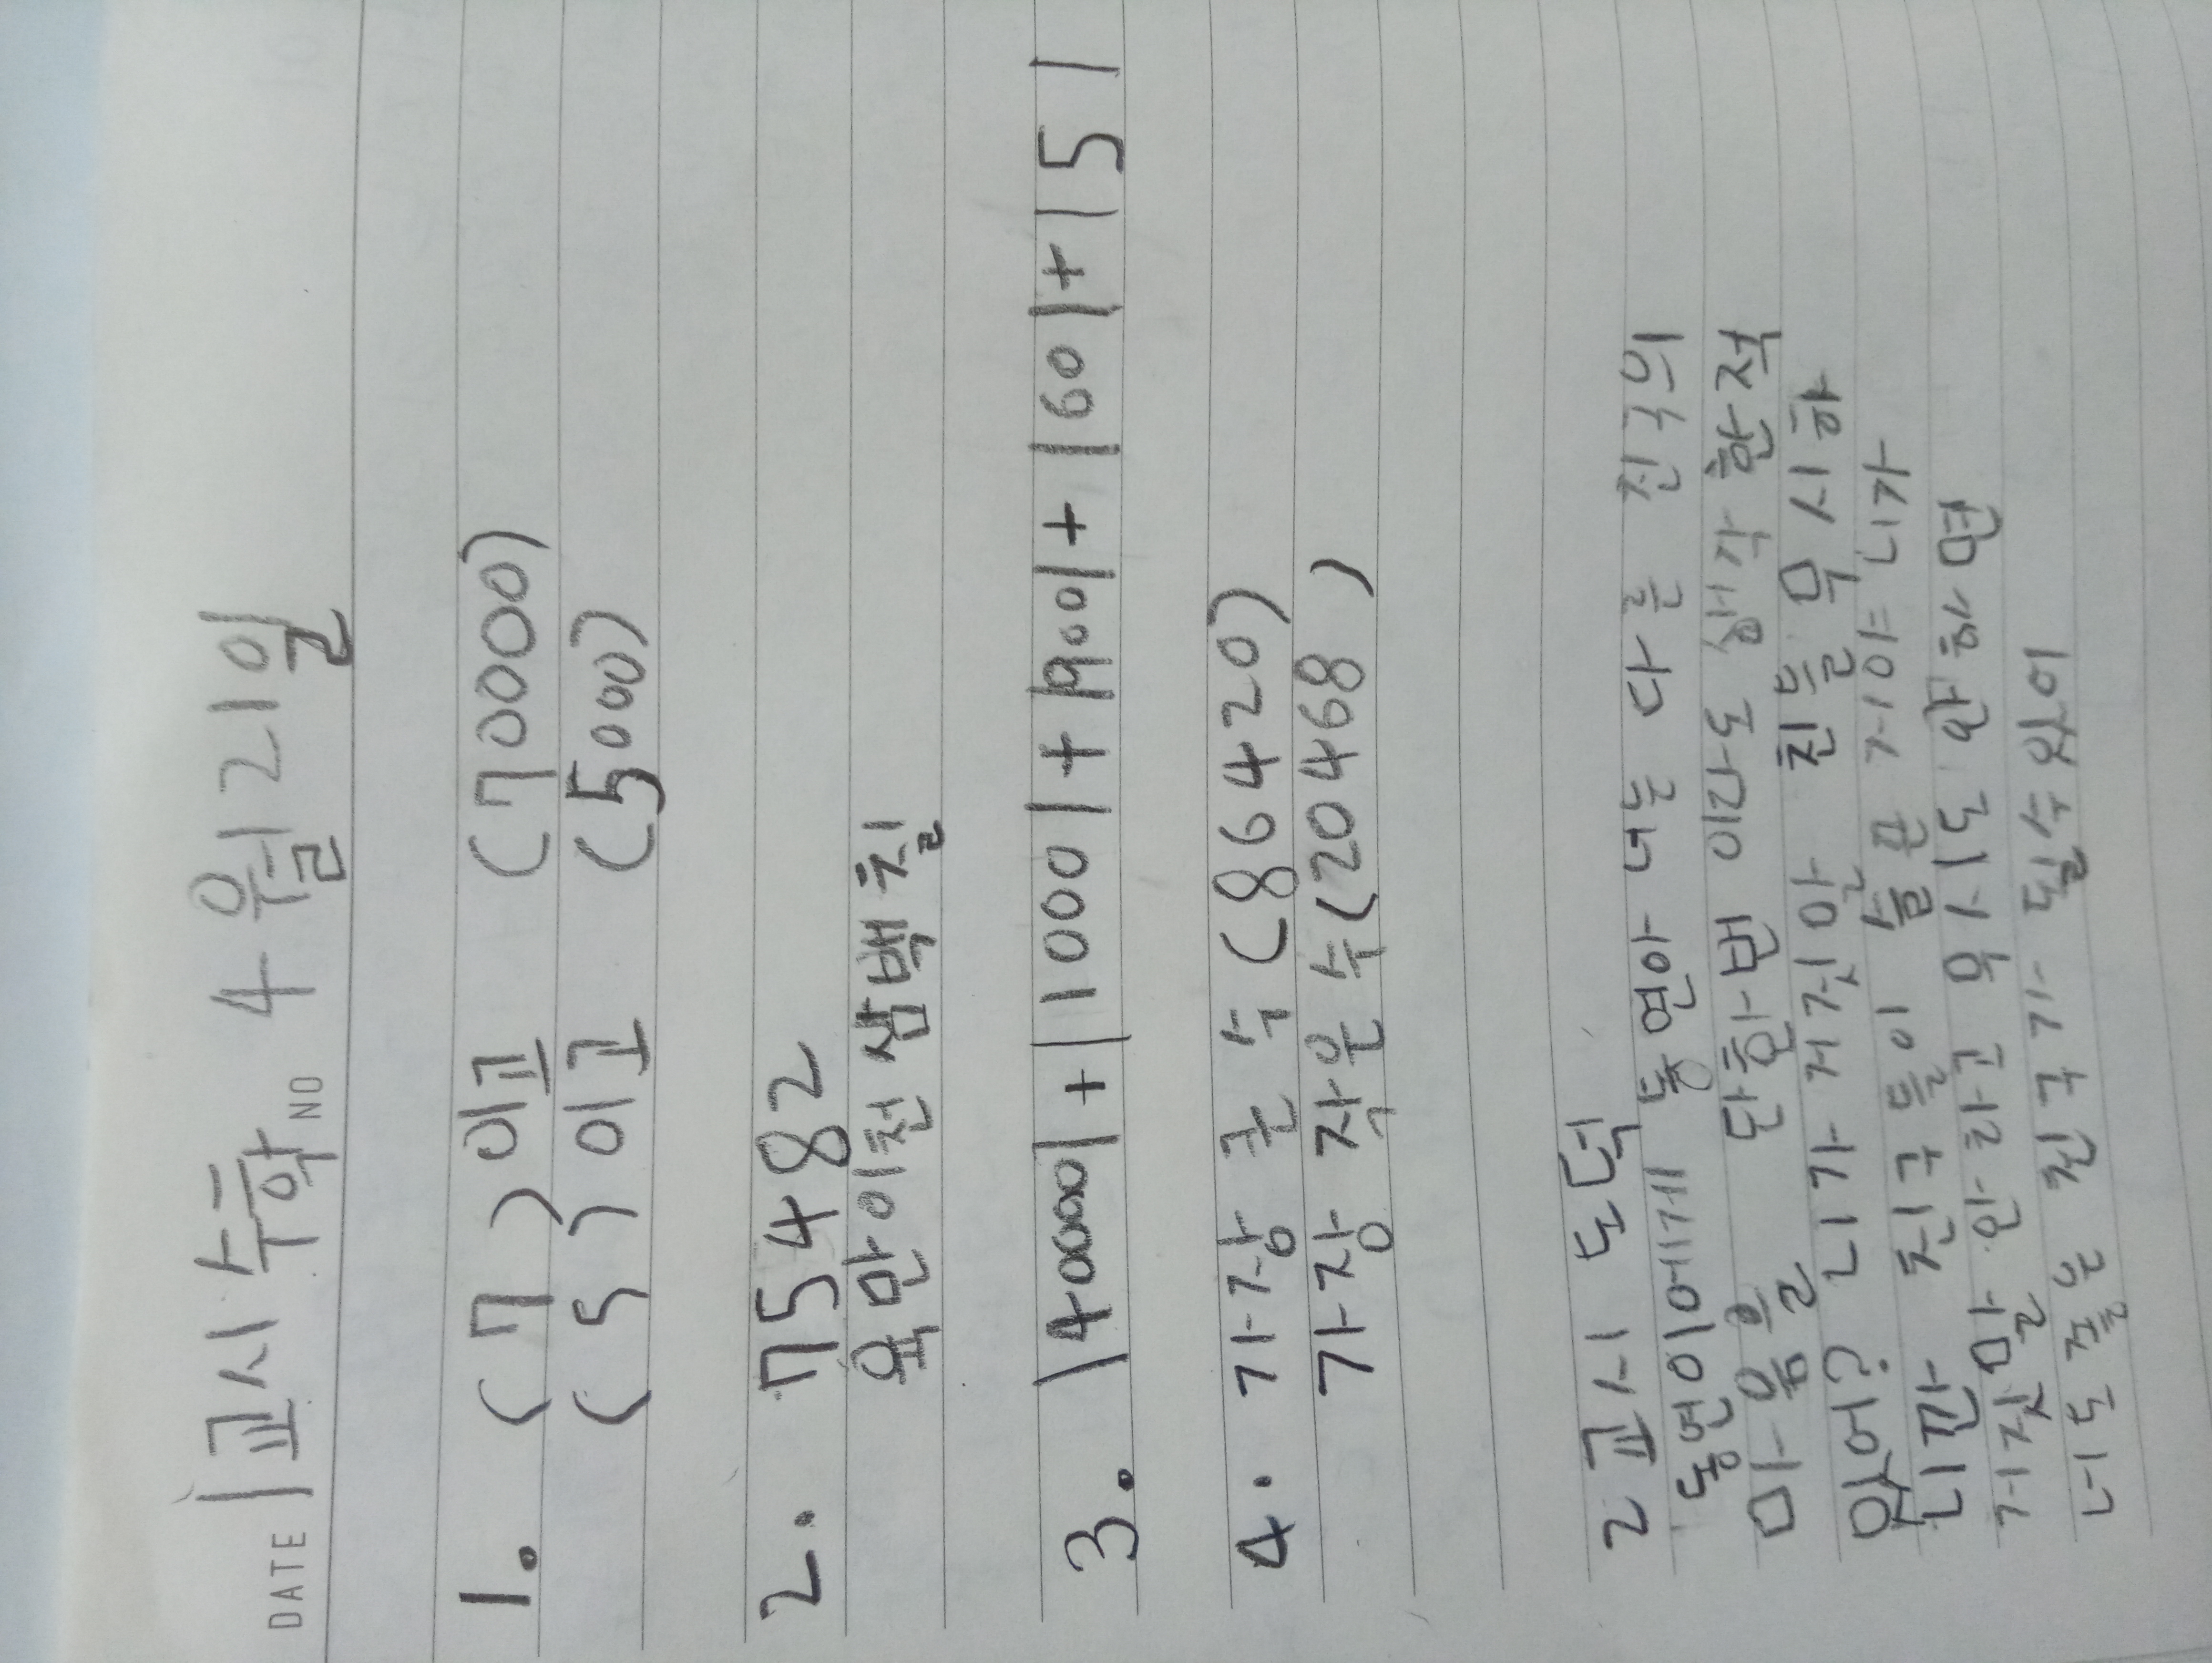 1교시 수학 4월21일
DATE NO
1. (7)이고 (70000)
(5)이고 (5000)
2. 75482
육만이천삼백칠
3. |40000|+|1000|+|900|+|60|+|5|
4. 가장 큰 수 (86420)
가장 작은 수(20468)
2교시 도덕
동연이에게 동연아 너는 다른 친구의
마음을 단한번 이라도 생각 한적
있어? 니가 거짓말 친들 무시하
니깐 친구들이 슬픈 거야= 니가
거짓말 안 하고 무시도 안 하면
너도 좋은 친구가 될수 있어